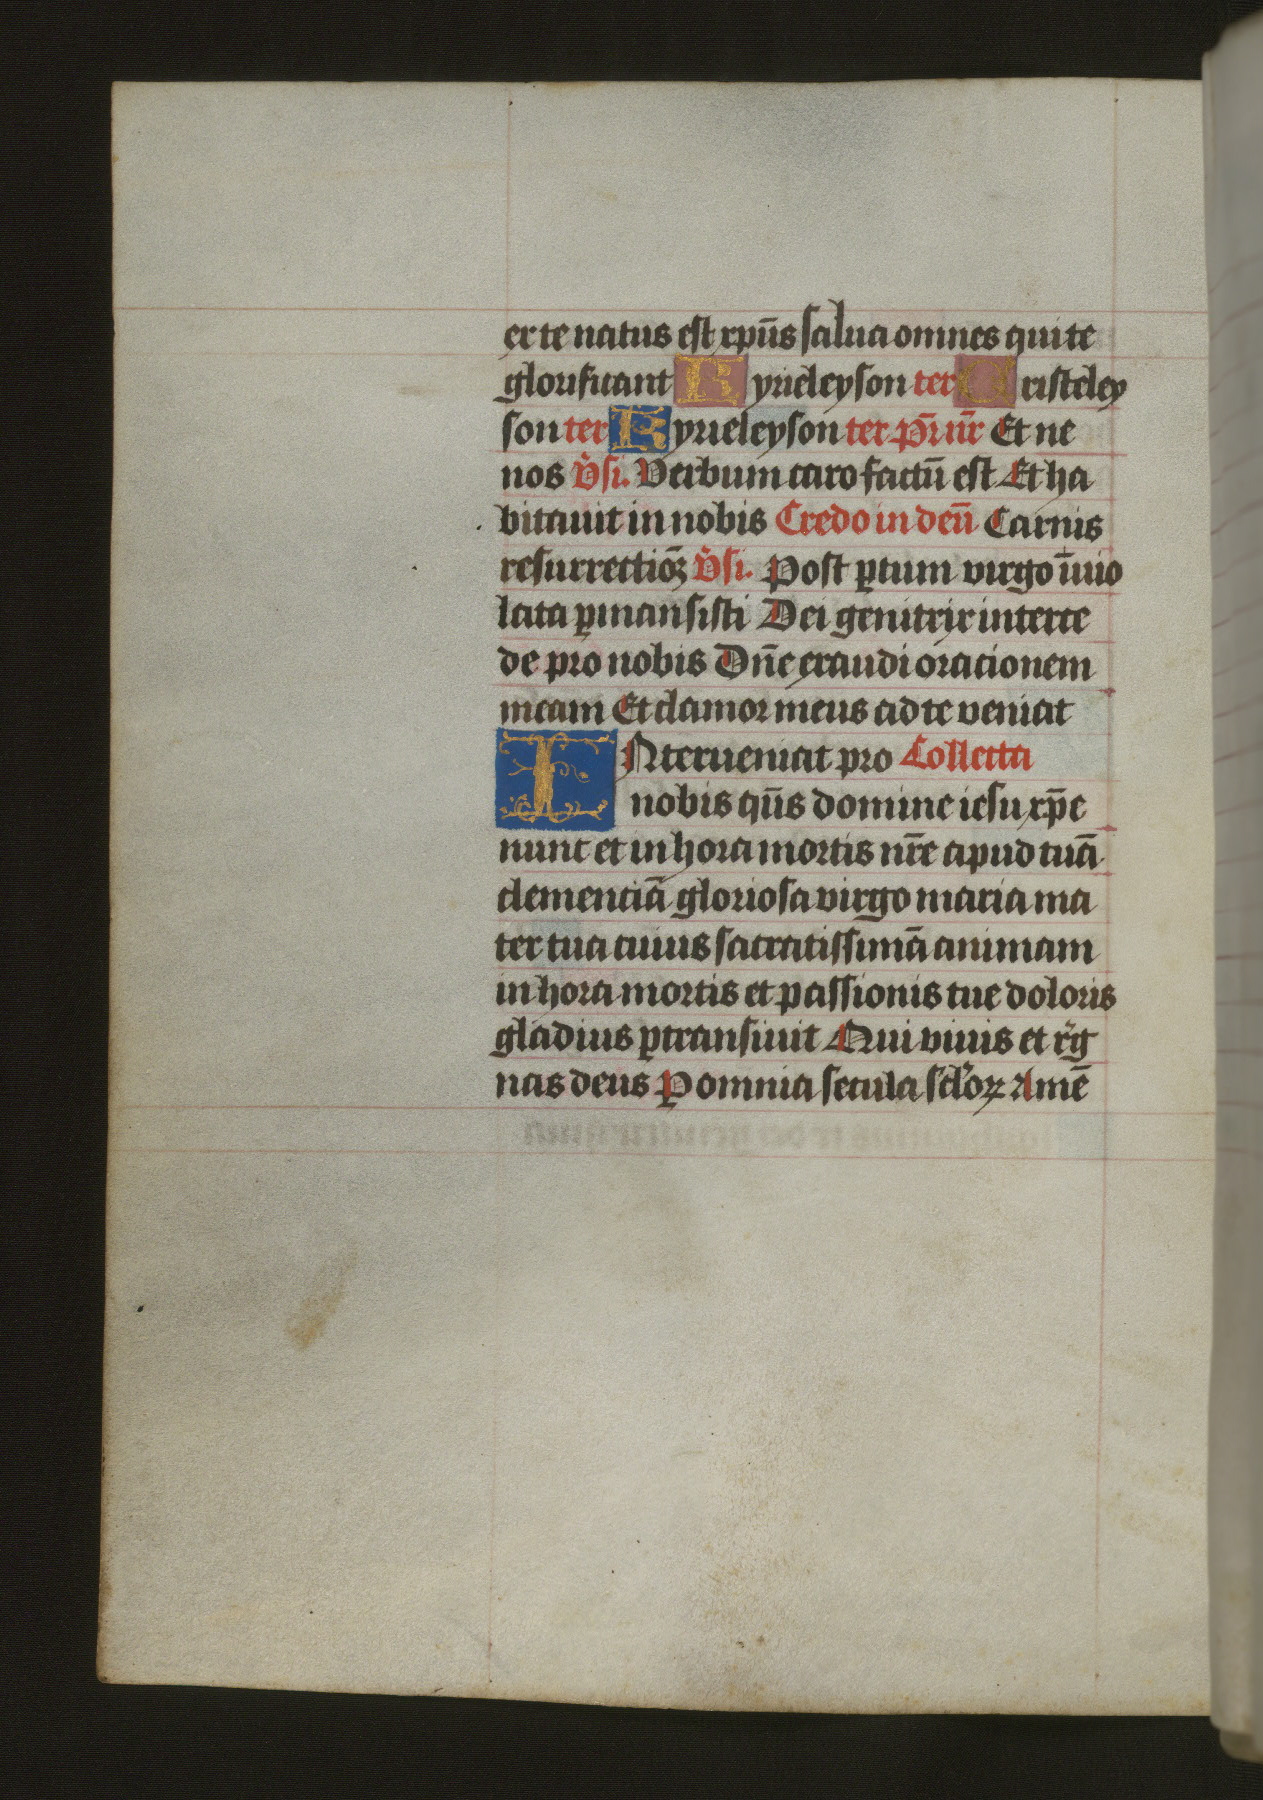 ex te natus est xpūs salua omnes qui te
glorificant Kyrieleyson ter Cristeley
son ter Kyrieleyson ter Pr̄ nr̄ Et ne
nos V̉si. Verbum caro factū est Et ha
bitauit in nobis Credo in deū Carnis
resurrectioꝫ V̉si. Post ꝑtum virgo īuio
lata ꝑmansisti Dei genitrix interce
de pro nobis Dn̄e exaudi orationem
meam Et clamor meus ad te veniat
INterueniat pro Collecta
nobis qūs domine iesu xp̄e
nunc et in hora mortis nr̄e apud tuā
clementiā gloriosa virgo maria ma
ter tua cuius sacratissimā animam
in hora mortis et passionis tue doloris
gladius ꝑtransiuit Qui viuis et rͥg
nas deus Ꝑ omnia secula sclͦoꝝ Amē